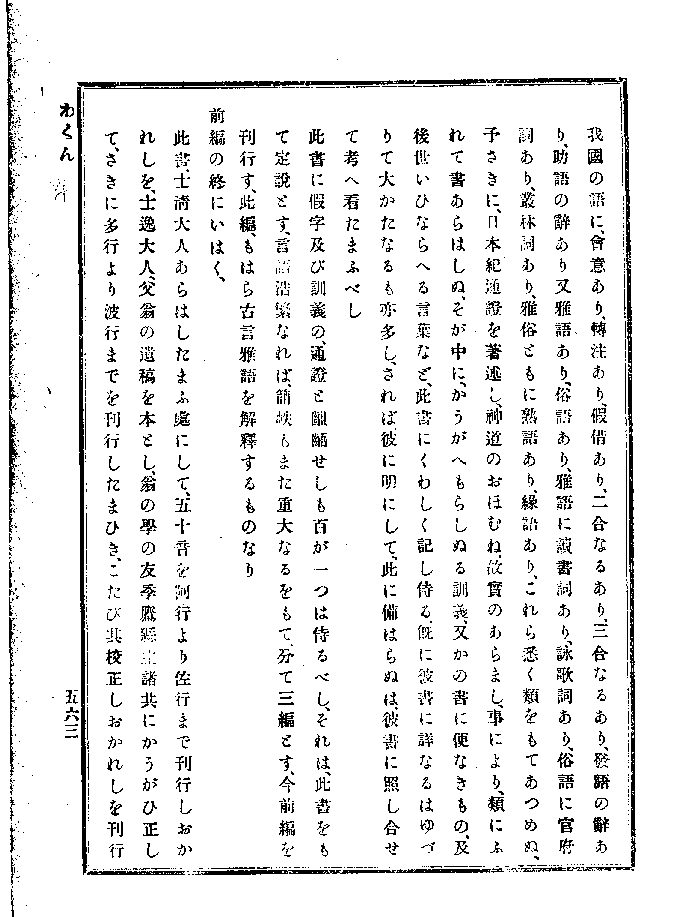 我國の語に、會意あり、轉注あり、假借あり、二合なるあり、三合なるあり、發語の辭あ
り、助語の辭あり又雅語あり、俗語あり、雅語に讀書詞あり、詠歌詞あり、俗語に官府
詞あり、叢林詞あり、雅俗ともに熟語あり、緣語あり、これら悉く類をもてあつめぬ、
予さきに、日本紀通證を著述し、神道のおほむね、故實のあらまし、事により、類にふ
れて書あらはしぬ、そが中に、かうがへもらしぬる訓義、又かの書に便なきもの、及
後世いひならへる言葉など、此書にくわしく記し侍る、既に彼書に詳なるはゆづ
りて大かたなるも亦多し、されば彼に明にして、此に備はらぬは、彼書に照し合せ
て考へ看たまふべし
此書に假字及び訓義の、通證と齟齬せしも百が一つは侍るべし、それは、此書をも
て定說とす、言語浩繁なれば、簡帙もまた重大なるをもて、分て三編とす、今前編を
刊行す、此編、もはら古言雅語を解釋するものなり
前編の終にいはく、
此書、士淸大人あらはしたまふ處にして、五十音を阿行より佐行まで刊行しおか
れしを、士逸大人、父翁の遺稿を本とし、翁の學の友季鷹縣主諸共にかうがひ正し
て、さきに多行より波行までを刊行したまひき、こたび其校正しおかれしを刊行
わくん
五六三